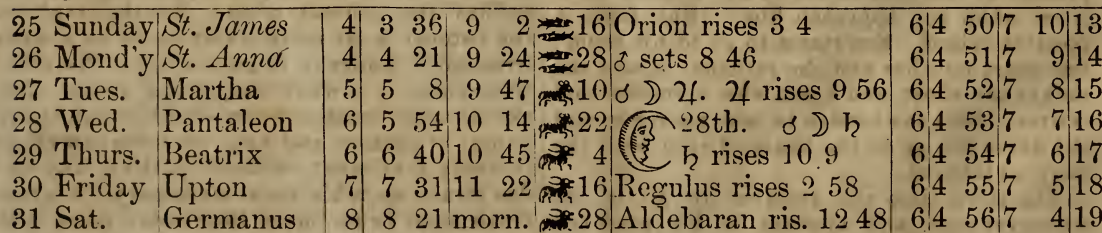 25 Sunday St. James 4 3 36 9 2 16 Orion rises 3 4 6 4 50 7 10 13
26 Mond'y St. Anna 4 4 21 9 24 28 ♂ sets 8 46 6 4 51 7 9 14
27 Tues. Martha 5 5 8 9 47 10 ☌ ☽ ♃. ♃ rises 9 56 6 4 52 7 8 15
28 Wed. Pantaleon 6 5 54 10 14 22 28th. ☌ ☽ ♄ 6 4 53 7 7 16
29 Thurs. Beatrix 6 6 40 10 45 4 ♄ rises 10 9 6 4 54 7 6 17
30 Friday Upton 7 7 31 11 22 16 Regulus rises 2 58 6 4 55 7 5 18
31 Sat. Germanus 8 8 21 morn. 28 Aldebaran ris. 12 48 6 4 56 7 4 19